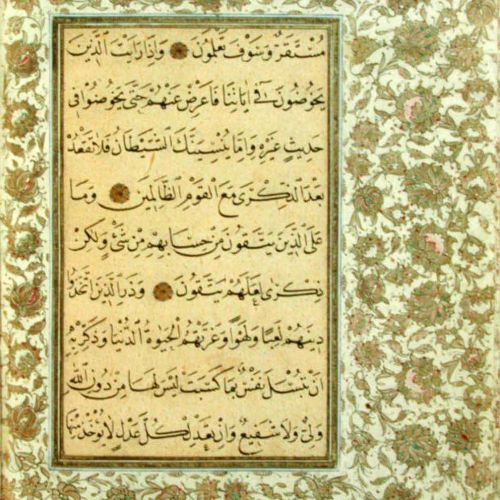 مُسْتَقَرٌّ وَسَوْفَ تَعْلَمُونَ وَاِذَا رَاَيْتَ الَّذِينَ
يَخُوضُونَ فِى اٰيَاتِنَا فَاَعْرِضْ عَنْهُمْ حَتّٰى يَخُوضُوا فِى
حَدِيثٍ غَيْرِهِ وَاِمَّا يُنْسِيَنَّكَ الشَّيْطَانُ فَلَا تَقْعُدْ
بَعْدَ الذِّكْرٰى مَعَ الْقَوْمِ الظَّالِمِينَ وَمَا
عَلَى الَّذِينَ يَتَّقُونَ مِنْ حِسَابِهِمْ مِنْ شَىْءٍ وَلٰكِنْ
ذِكْرٰى لَعَلَّهُمْ يَتَّقُونَ وَذَرِ الَّذِينَ اتَّخَذُوا
دِينَهُمْ لَعِبًا وَلَهْوًا وَغَرَّتْهُمُ الْحَيٰوةُ الدُّنْيَا وَذَكِّرْ بِهِ
اَنْ تُبْسَلَ نَفْسٌ بِمَا كَسَبَتْ لَيْسَ لَهَا مِنْ دُونِ اللّٰهِ
وَلِىٌّ وَلَا شَفِيعٌ وَاِنْ تَعْدِلْ كُلَّ عَدْلٍ لَا يُؤْخَذْ مِنْهَا